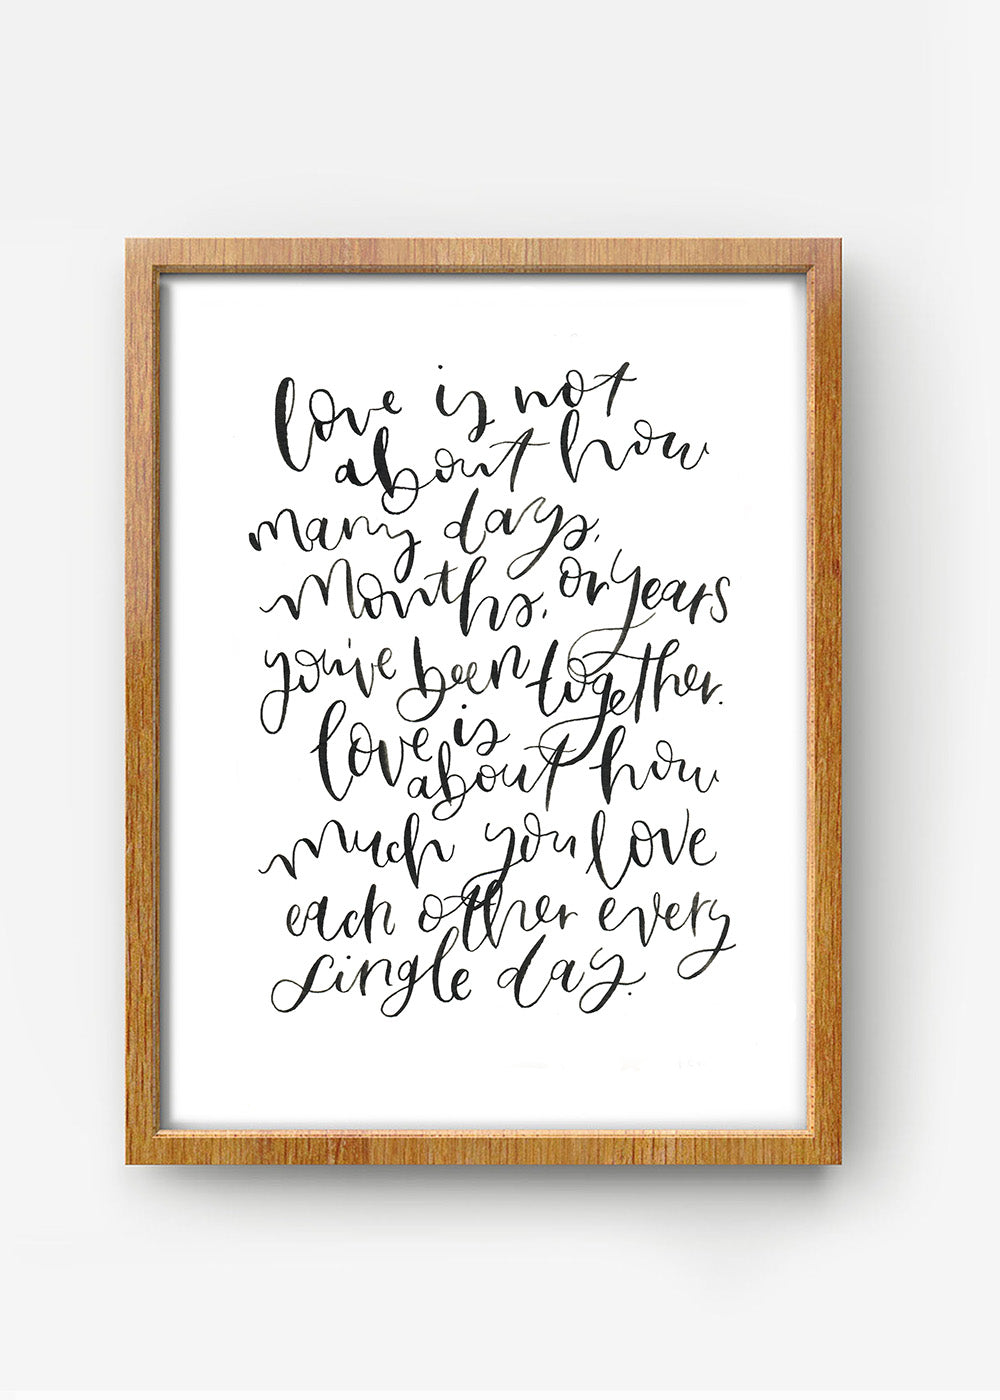 love is not
about how
many days,
months, or years
you've been together.
love is
about how
much you love
each other every
single day.